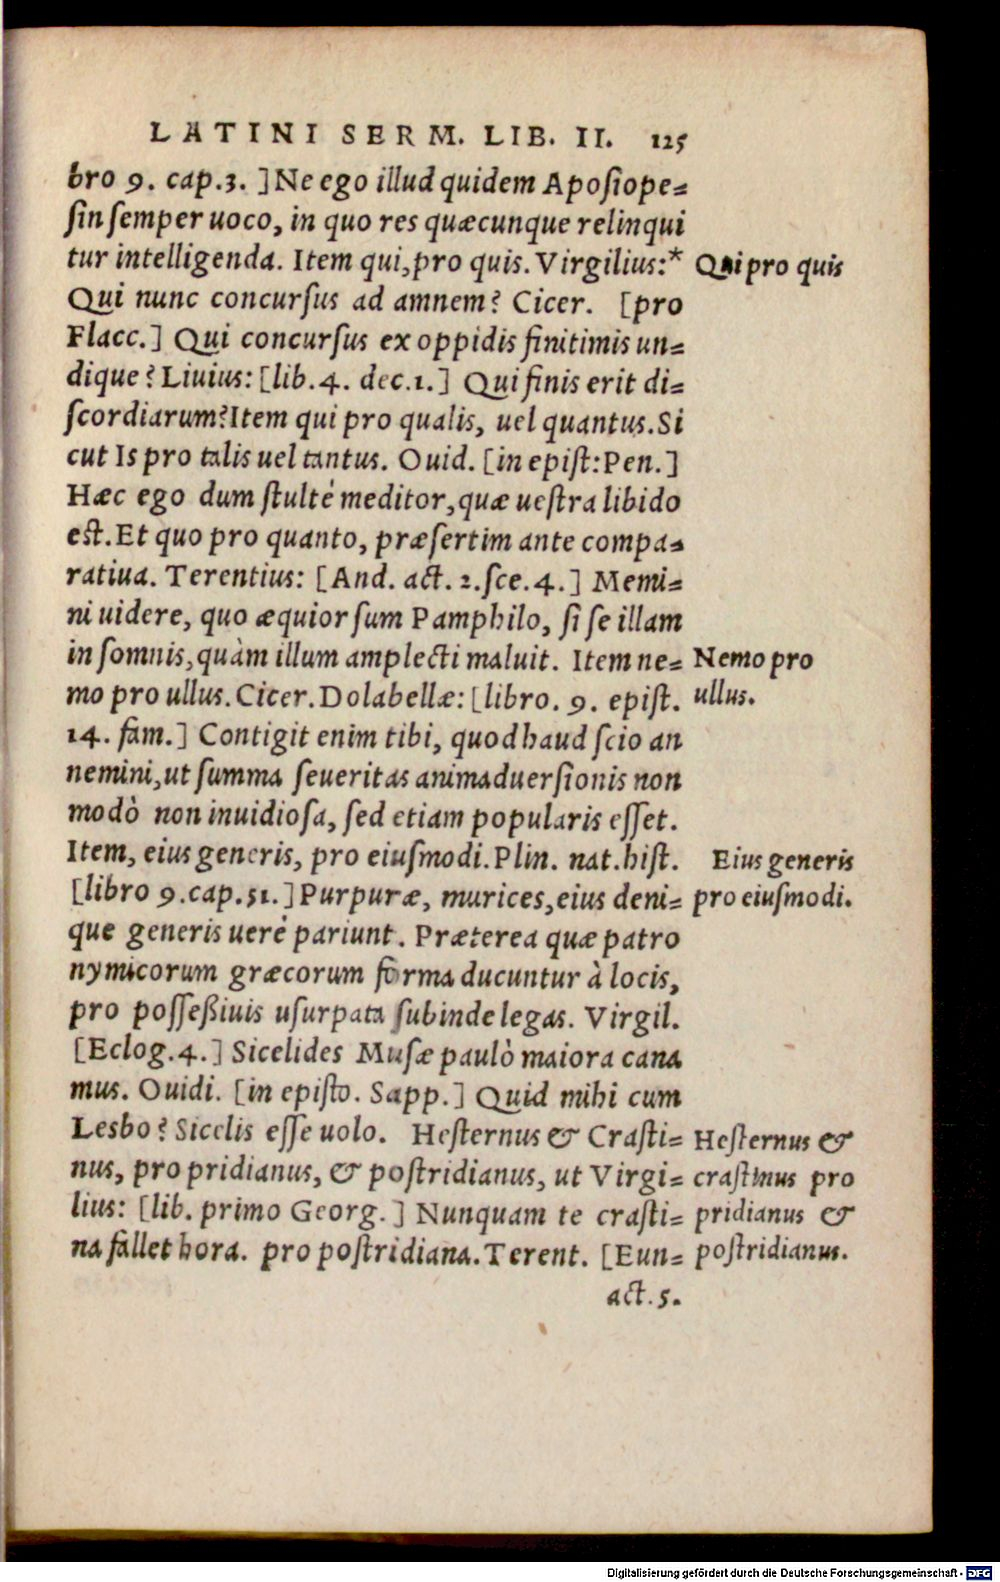 LATINI SERM. LIB. II. 125
bro 9. cap.3. ]Ne ego illud quidem Aposiope=
sin semper uoco, in quo res quæcunque relinqui
tur intelligenda. Item qui,pro quis. Virgilius:* Qui pro quis
Qui nunc concursus ad amnem? Cicer. [pro
Flacc.] Qui concursus ex oppidis finitimis un=
dique? Liuius: [lib.4. dec.1.] Qui finis erit di=
scordiarum?Item qui pro qualis, uel quantus.Si
cut Is pro talis uel tantus. Ouid. [in epist:Pen.]
Hæc ego dum stultè meditor,quæ uestra libido
est.Et quo pro quanto, præsertim ante compa=
ratiua. Terentius: [And. act. 2.sce.4.] Memi=
ni uidere, quo æquior sum Pamphilo, si se illam
in somnis,quàm illum amplecti maluit. Item ne= Nemo pro
mo pro ullus.Cicer.Dolabellæ: [libro. 9. epist. ullus.
14. fam.] Contigit enim tibi, quod haud scio an
nemini,ut summa seueritas animaduersionis non
modò non inuidiosa, sed etiam popularis esset.
Item, eius generis, pro eiusmodi.Plin. nat.hist. Eius generis
[libro 9.cap.51.]Purpuræ, murices,eius deni= pro eiusmodi.
que generis uerè pariunt. Præterea quæ patro
nymicorum græcorum forma ducuntur à locis,
pro possessiuis usurpata subinde legas. Virgil.
[Eclog.4.] Sicelides Musæ paulò maiora cana
mus. Ouidi. [in episto. Sapp.] Quid mihi cum
Lesbo? Sicelis esse uolo. Hesternus & Crasti= Hesternus &
nus, pro pridianus, & postridianus, ut Virgi= crastinus pro
lius: [lib. primo Georg.] Nunquam te crasti= pridianus &
na fallet hora. pro postridiana.Terent. [Eun= postridianus.
act.5.
Digitalisierung gefördert durch die Deutsche Forschungsgemeinschaft - DFG